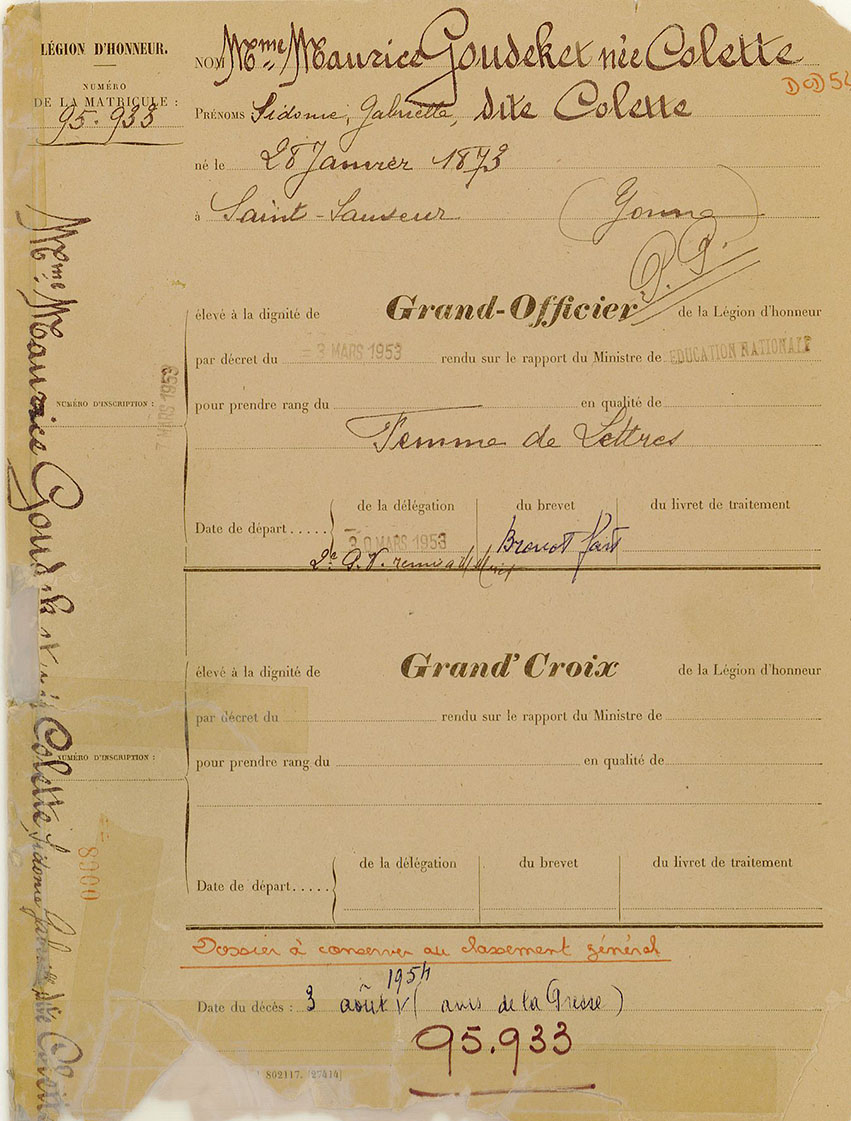 LÉGION D'HONNEUR.
NUMÉRO
DE LA MATRICULE :
95.933
NOM Mme Maurice Goudeket née Colette
DCD 54
PRÉNOMS Sidonie, Gabrielle, dite Colette
né le 28 Janvier 1873
à Saint-Sauveur (Yonne)
P.P.
élevé à la dignité de Grand-Officier de la Légion d'honneur
par décret du = 3 MARS 1953 rendu sur le rapport du Ministre de EDUCATION NATIONALE
NUMÉRO D'INSCRIPTION :
7 MARS 1953
pour prendre rang du en qualité de
Femme de Lettres
Date de départ..... de la délégation du brevet du livret de traitement
30 MARS 1953 Brevot fait
2e P.V. remis
élevé à la dignité de Grand'Croix de la Légion d'honneur
par décret du rendu sur le rapport du Ministre de
NUMÉRO D'INSCRIPTION :
pour prendre rang du en qualité de
Date de départ..... de la délégation du brevet du livret de traitement
Dossier à conserver au classement général
Date du décès : 3 août 1954 (avis de la Presse)
95.933
802117. (27414)
Mme Maurice Goudeket née Colette, Sidonie Gabrielle dite Colette
8000